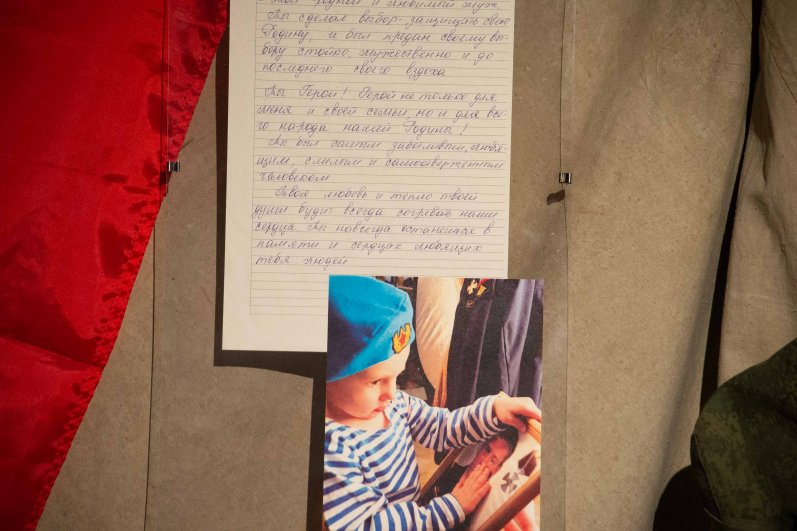 Мой родной и любимый муж
Ты сделал выбор - защищать свою
Родину, и был предан своему вы-
бору стойко, мужественно и до
последнего своего вздоха
Ты Герой! Герой не только для
меня и своей семьи, но и для все-
го народа нашей Родины!
Ты был самым заботливым, любя-
щим, смелым и самоотверженным
человеком
Твоя любовь и тепло твоей
души будит всегда согревать наши
сердца. Ты навсегда останешся в
памяти и сердцах любящих
тебя людей